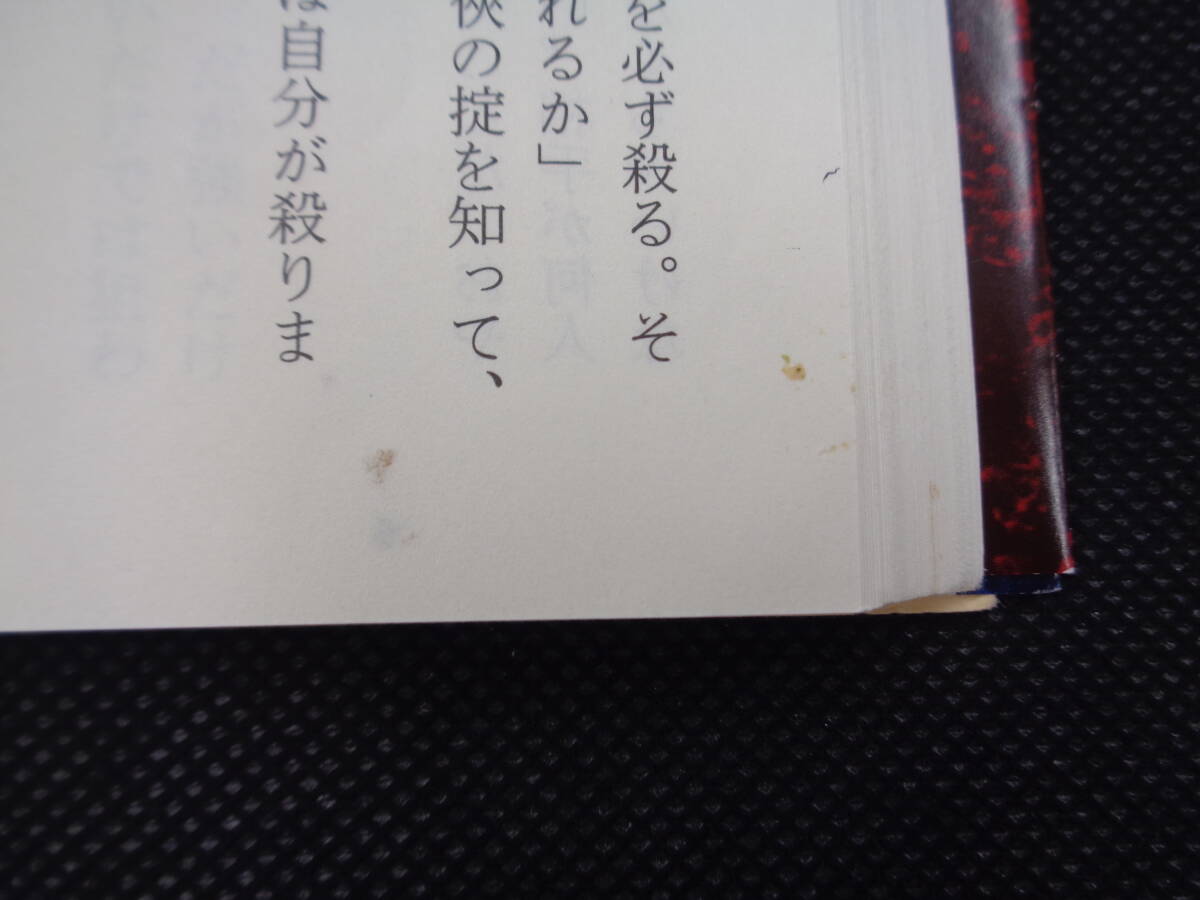 を必ず殺る。そ
れるか」
の掟を知って、
は自分が殺りま